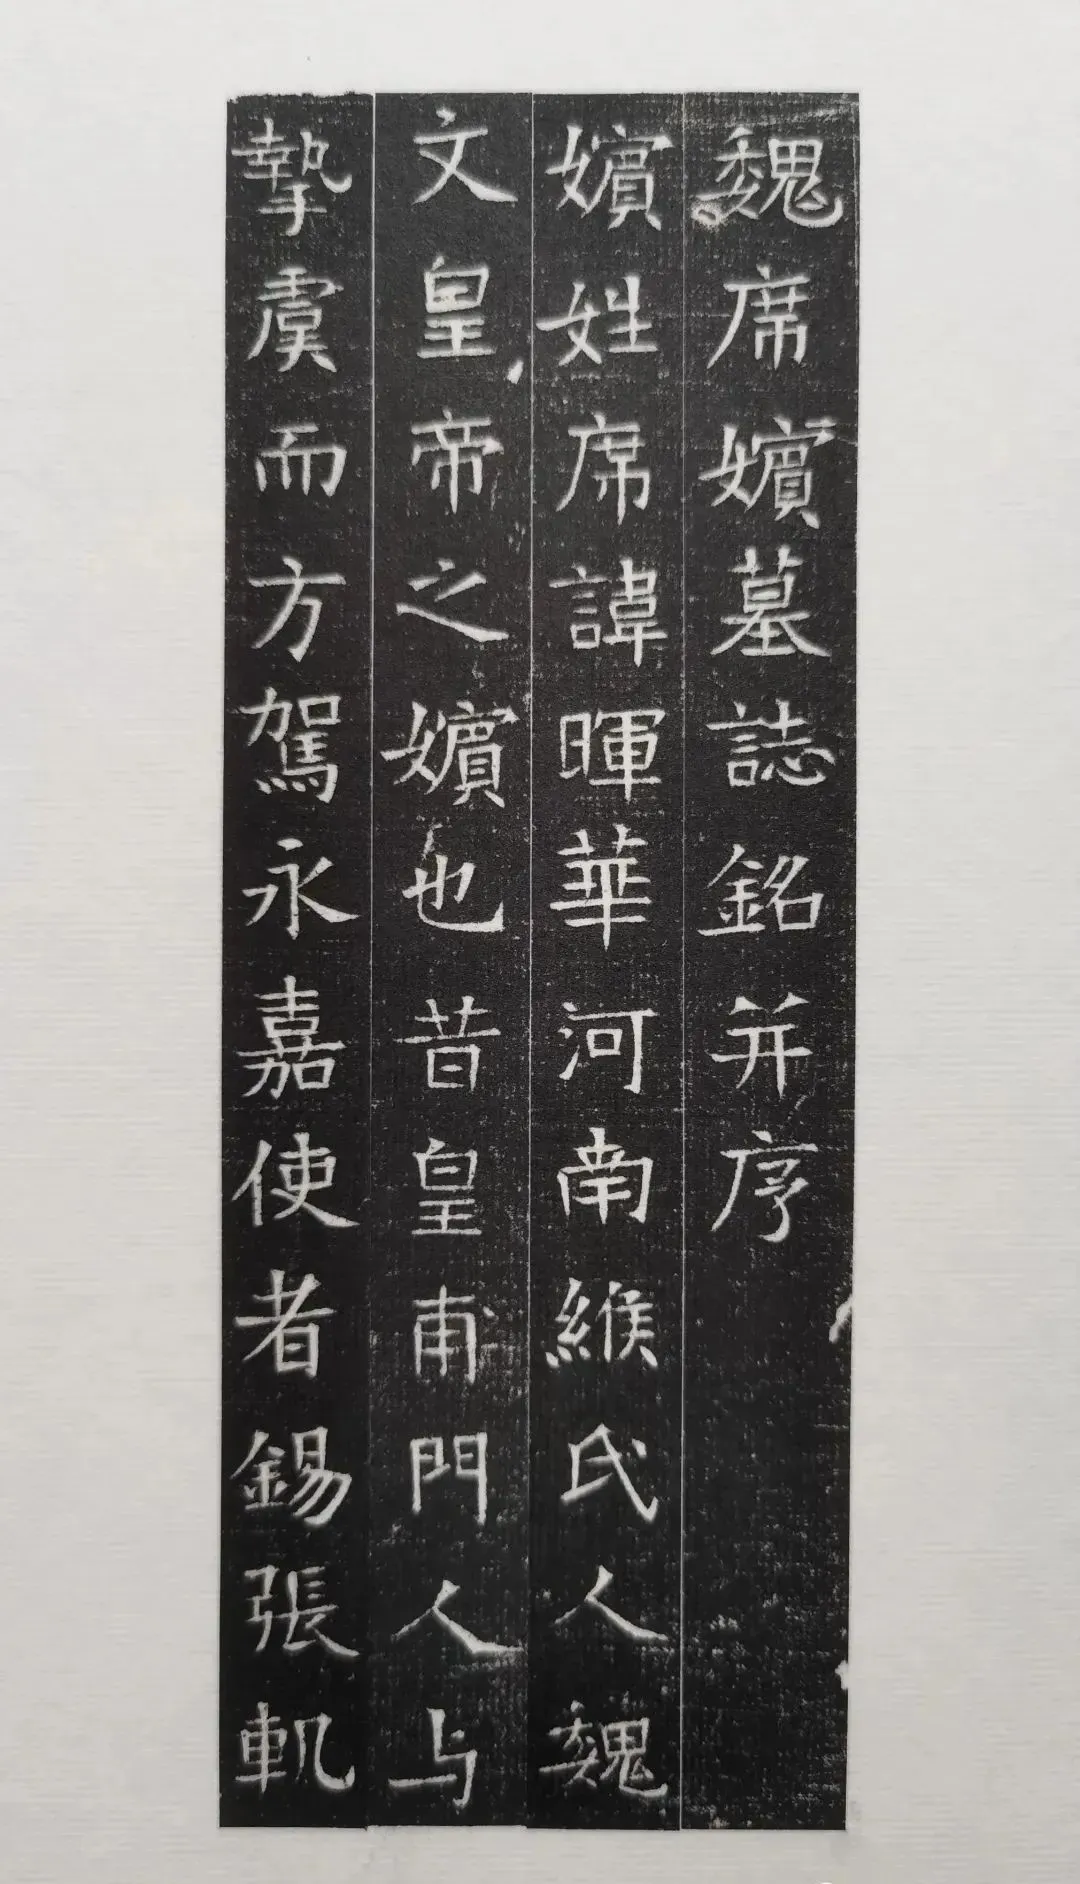 魏席嬪墓誌銘并序
嬪姓席諱暉華河南緱氏人魏
文皇帝之嬪也昔皇甫門人与
摯虞而方駕永嘉使者錫張軌